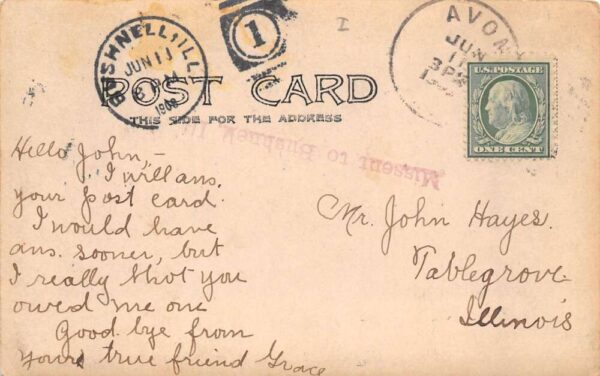 BUSHNELL, ILL.
JUN 11
1909
1
I
AVON
JUN
11
3PM
U.S. POSTAGE
ONE CENT
POST CARD
THIS SIDE FOR THE ADDRESS
Missent to Bushnell, Ill.
Hello John,-
I will ans.
your post card.
I would have
ans. sooner, but
I really thot you
owed me one
Good bye from
yours true friend Grace
Mr. John Hayes.
Tablegrove
Illinois